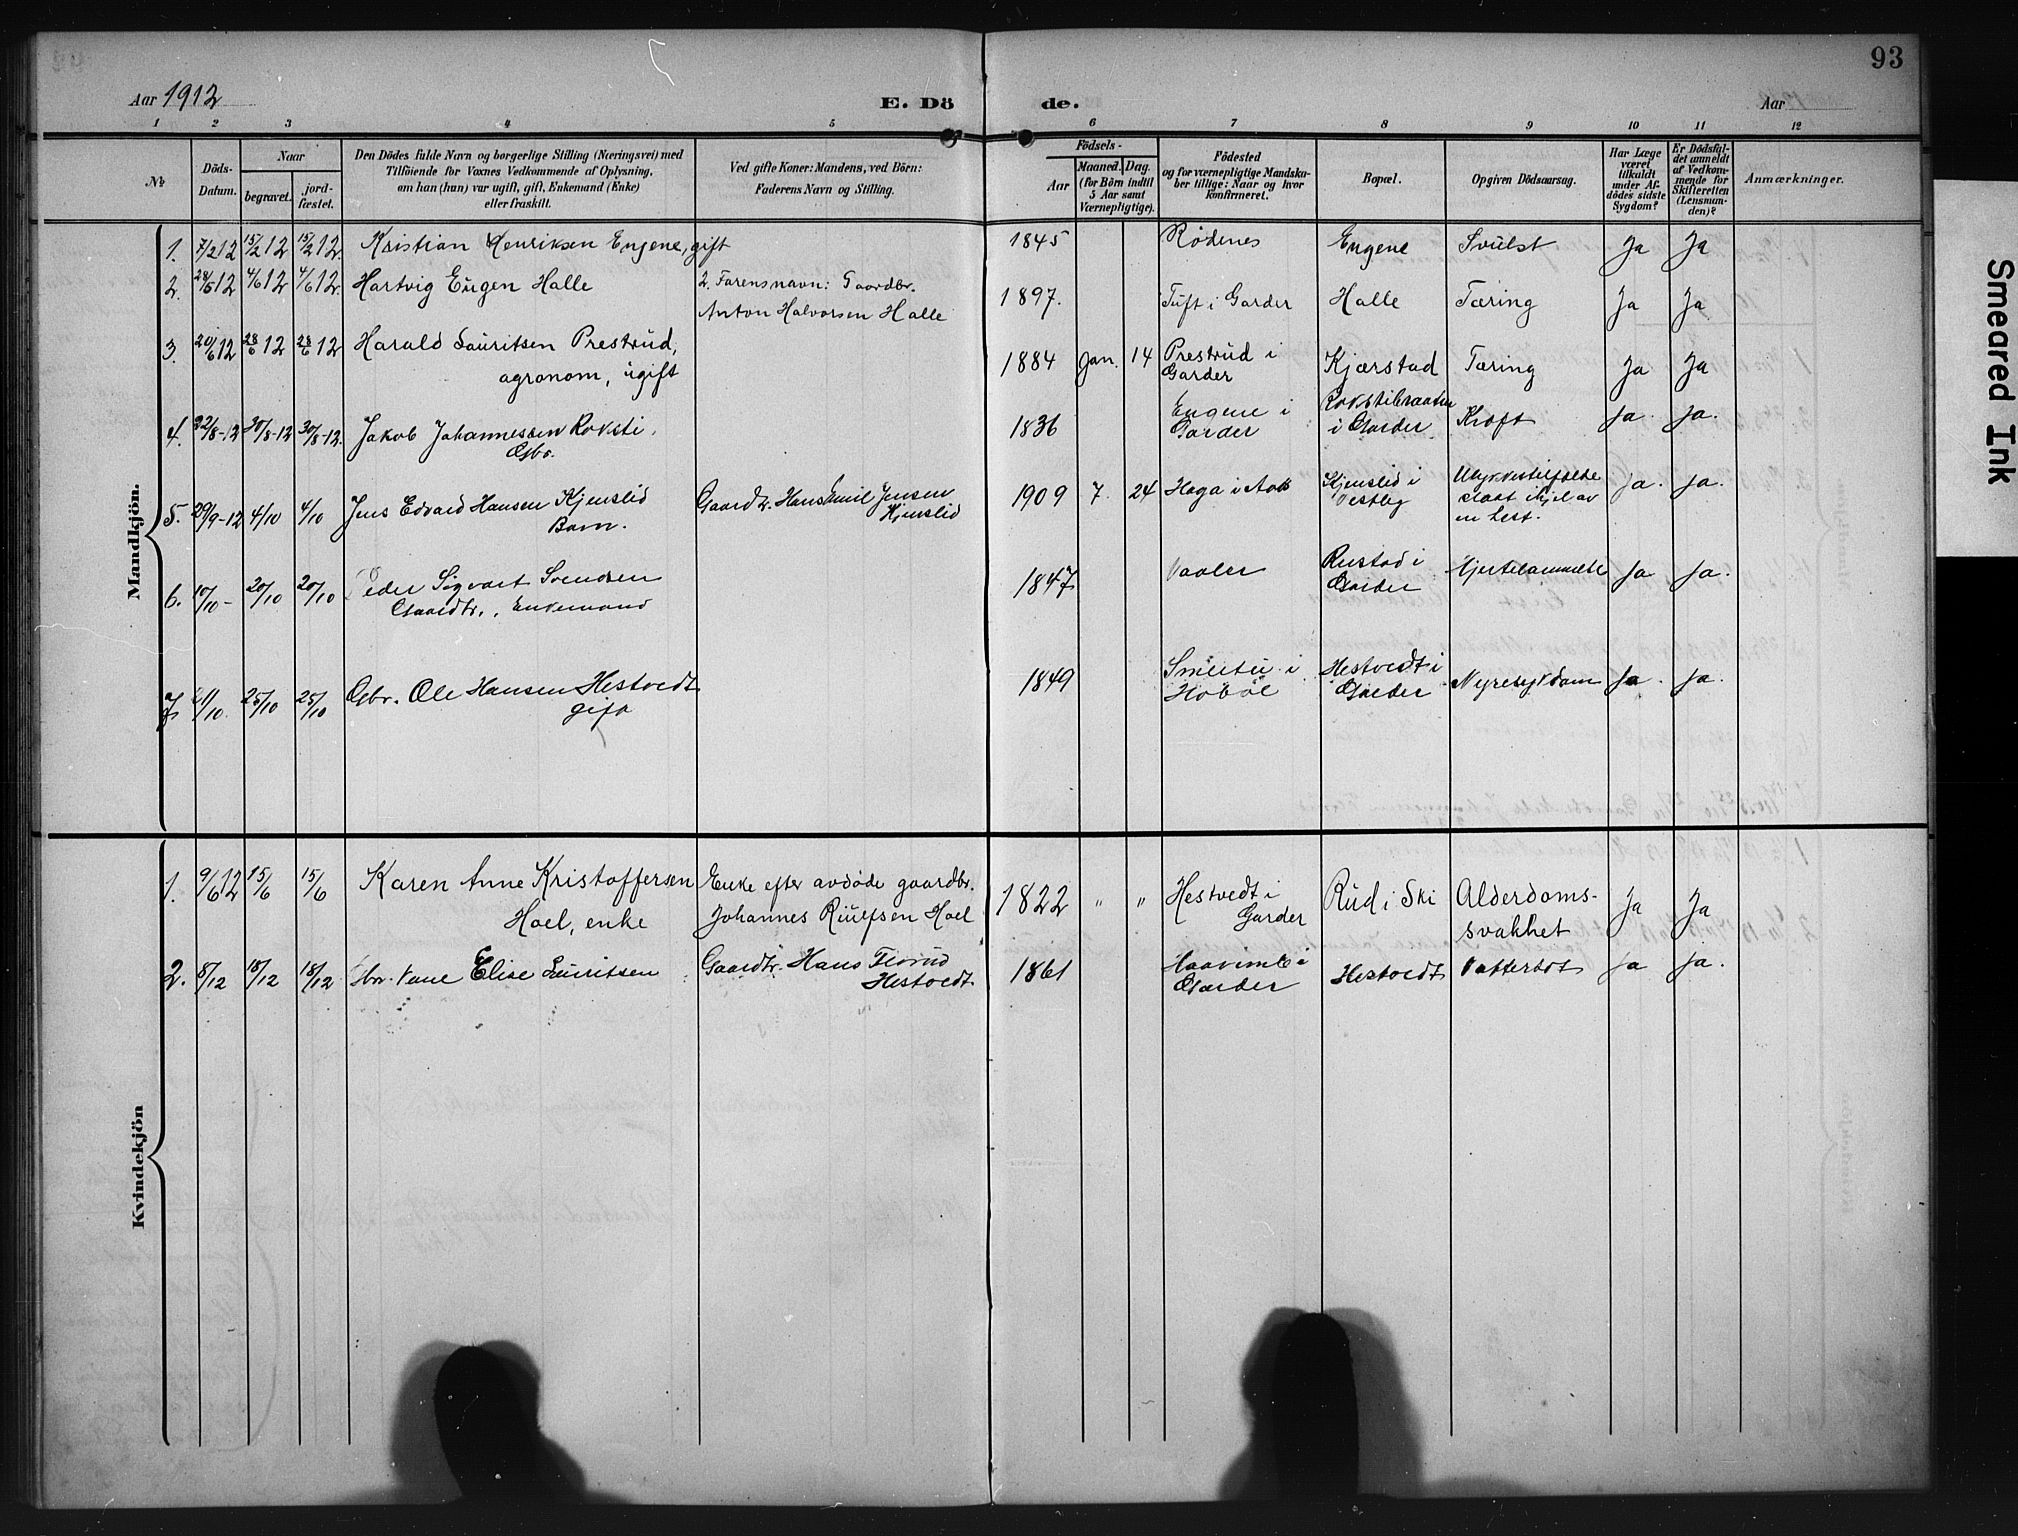 93
Aar 1912
E. Dö de.
Aar
1 2 3 4 5 6 7 8 9 10 11 12
No
Döds-Datum.
Naar
begravet.
jord-fæstet.
Den Dödes fulde Navn og borgerlige Stilling (Næringsvei) med
Tilföiende for Voxnes Vedkommende af Oplysning,
om han (hun) var ugift, gift, Enkemand (Enke)
eller fraskilt.
Ved gifte Koner: Mandens, ved Börn:
Faderens Navn og Stilling.
Födsels-
Aar
Maaned. Dag.
(for Börn indtil
5 Aar samt
Værnepligtige).
Födested
og for værnepligtige Mandska-
ber tillige: Naar og hvor
konfirmeret.
Bopæl.
Opgiven Dödsaarsag.
Har Læge
været
tilkaldt
under Af-
dödes sidste
Sygdom?
Er Dödsfal-
det anmeldt
af Vedkom-
mende for
Skifteretten
(Lensman-
den)?
Anmærkninger.
Mandkjön.
1. 7/2 12 15/2 12 15/2 12. Kristian Henriksen Engene, gift 1845 Rødenes Engene Svulst Ja Ja
2. 24/5 12 4/6 12 4/6 12. Hartvig Eugen Halle 2. Farens navn: Gaardbr.
Anton Halvorsen Halle 1897. Tuft i Garder Halle Tæring Ja Ja
3. 20/6 12 28/6 12 28/6 12 Harald Lauritsen Prestrud,
agronom, ugift 1884 Jan. 14 Prestrud i
Garder Kjærstad Tæring Ja Ja
4. 22/8-12 30/8-12 30/8-12. Jakob Johannessen Roksti.
Gbr. 1836 Engene i
Garder Rokstibraaten
i Garder Kræft Ja. Ja.
5. 29/9-12 4/10 4/10 Jens Edvard Hansen Kjenslid
Barn. Gaardbr. Hans Emil Jensen
Kjenslid 1909 7. 24 Haga i Aas Kjenslid i
Vestby Ulykkestilfælde
slaat ihjel av
en hest. Ja. Ja.
6. 10/10- 20/10 20/10 Peder Sigvart Svendsen
Gaardbr., Enkemand 1847 Vaaler Rustad i
Garder Hjertelammelse Ja Ja.
7. 11/10. 25/10 25/10 Gbr. Ole Hansen Hestvedt
gift 1849 i
Hobøl Hestvedt i
Garder Nyresykdom Ja. Ja.
Kvindekjön
1. 9/6 12 15/6 15/6 Karen Anne Kristoffersen
Hoel, enke Enke efter avdøde gaardbr.
Johannes Riulfsen Hoel 1822 " " Hestvedt i
Garder Rud i Ski Alderdoms-
svakhet Ja Ja
2. 8/12 18/12 18/12 Elise Lauritsen Gaardbr. Hans
Hestvedt. 1861 i
Garder Hestvedt Vattersot Ja Ja.
Smeared Ink